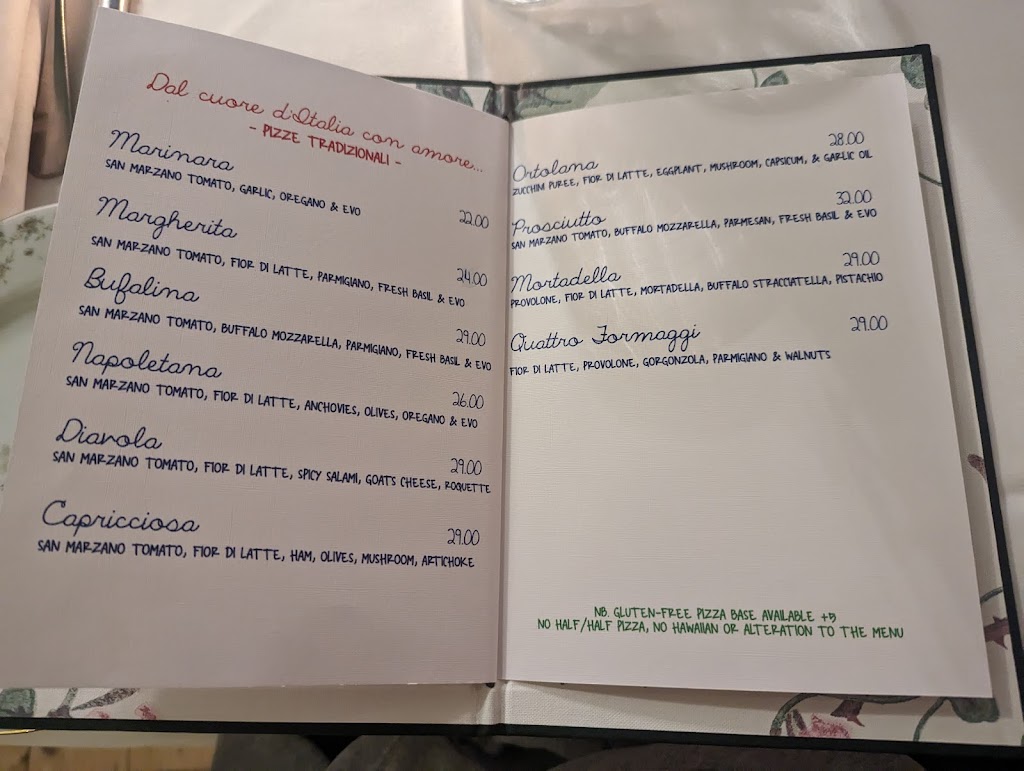 Dal cuore d'Italia con amore...
- PIZZE TRADIZIONALI -
Marinara
SAN MARZANO TOMATO, GARLIC, OREGANO & EVO
22.00
Margherita
SAN MARZANO TOMATO, FIOR DI LATTE, PARMIGIANO, FRESH BASIL & EVO
24.00
Bufalina
SAN MARZANO TOMATO, BUFFALO MOZZARELLA, PARMIGIANO, FRESH BASIL & EVO
29.00
Napoletana
SAN MARZANO TOMATO, FIOR DI LATTE, ANCHOVIES, OLIVES, OREGANO & EVO
26.00
Diavola
SAN MARZANO TOMATO, FIOR DI LATTE, SPICY SALAMI, GOATS CHEESE, ROQUETTE
29.00
Capricciosa
SAN MARZANO TOMATO, FIOR DI LATTE, HAM, OLIVES, MUSHROOM, ARTICHOKE
29.00
Ortolana
28.00
ZUCCHINI PUREE, FIOR DI LATTE, EGGPLANT, MUSHROOM, CAPSICUM, & GARLIC OIL
Prosciutto
32.00
SAN MARZANO TOMATO, BUFFALO MOZZARELLA, PARMESAN, FRESH BASIL & EVO
Mortadella
29.00
PROVOLONE, FIOR DI LATTE, MORTADELLA, BUFFALO STRACCIATELLA, PISTACHIO
Quattro Formaggi
29.00
FIOR DI LATTE, PROVOLONE, GORGONZOLA, PARMIGIANO & WALNUTS
NB. GLUTEN-FREE PIZZA BASE AVAILABLE +5
NO HALF/HALF PIZZA, NO HAWAIIAN OR ALTERATION TO THE MENU